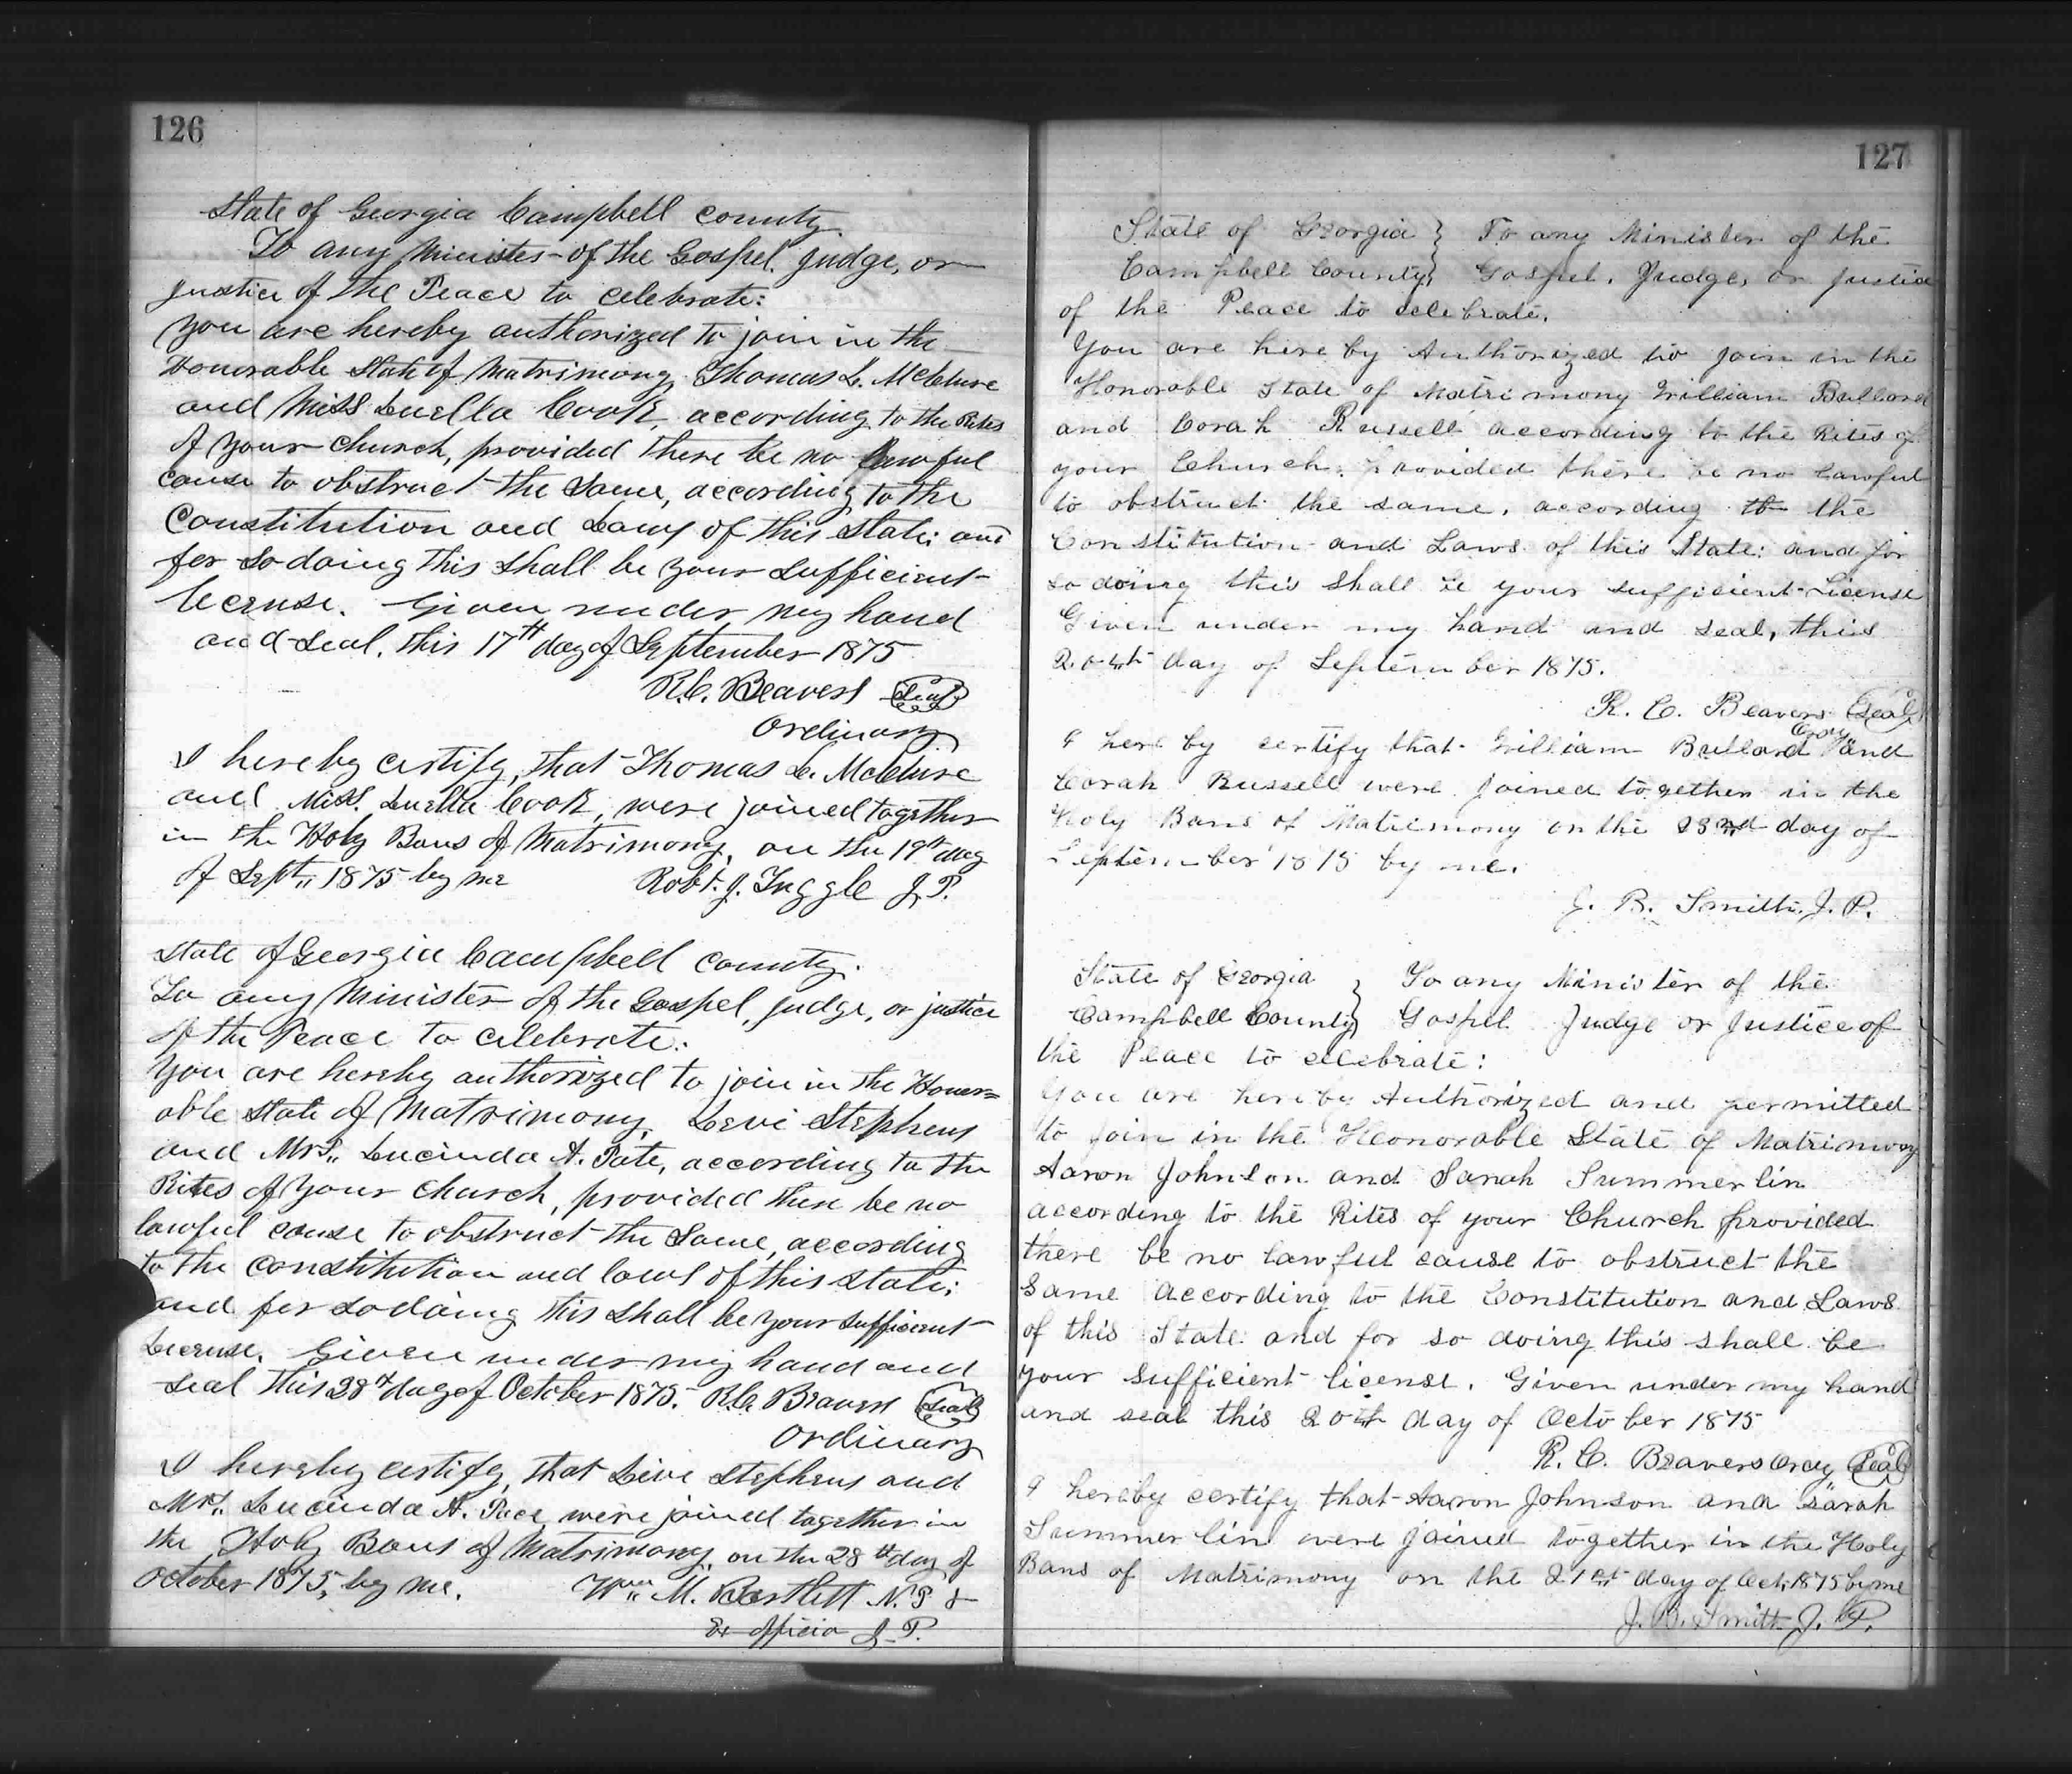 126
State of Georgia Campbell county.
To any Minister of the Gospel, Judge, or
justice of the Peace to celebrate:
You are hereby authorized to join in the
Honorable State of Matrimony, Thomas L. McClure
and Miss Luella Cook, according to the Rites
of your church, provided there be no lawful
cause to obstruct the same, according to the
Constitution and Laws of this State; and
for so doing this shall be your sufficient
license. Given under my hand
and seal, this 17th day of September 1875
R.C. Beavers Seal
Ordinary
I hereby certify, that Thomas L. McClure
and Miss. Luella Cook, were joined together
in the Holy Bans of Matrimony, on the 19th day
of Sept,, 1875 by me Robt. J. Tuggle J.P.
State of Georgia Campbell county.
To any Minister of the Gospel, Judge, or justice
of the Peace to celebrate:
You are hereby authorized to join in the Honor=
able State of Matrimony, Levi Stephens
and Mrs,, Lucinda A. Pate, according to the
Rites of your church, provided there be no
lawful cause to obstruct the same, according
to the constitution and laws of this state;
and for so doing this shall be your sufficient
license. Given under my hand and
seal this 28th day of October 1875. R.C. Beavers Seal
Ordinary
I hereby certify, that Levi Stephens and
Mrs,, Lucinda A. were joined together in
the Holy Bans of Matrimony, on the 28th day of
October 1875, by me. Wm,, M. Bartlett N.P &
Ex officio J.P.
127
State of Georgia } To any Minister of the
Campbell County } Gospel, Judge, or justice
of the Peace to celebrate.
You are here by Authorized to join in the
Honorable State of Matrimony William Bullard
and Corah Russell according to the Rites of
your Church, Provided there be no lawful
to obstruct the same, according to the
Constitution and Laws of this State: and for
so doing this shall be your sufficient License
Given under my hand and seal, this
20th day of September 1875.
R. C. Beavers Ordy Seal
I here by certify that William Bullard and
Corah Russell were joined together in the
Holy Bans of Matrimony on the 23rd day of
September 1875 by me.
J. B. Smith. J. P.
State of Georgia } To any Minister of the
Campbell County } Gospel Judge or Justice of
the Peace to celebrate:
You are here by Authorized and permitted
to join in the Honorable State of Matrimony
Aaron Johnson and Sarah Summerlin
according to the Rites of your Church provided
there be no lawful cause to obstruct the
same according to the Constitution and Laws
of this State: and for so doing this shall be
your sufficient license. Given under my hand
and seal this 20th day of October 1875
R. C. Beavers Ordy Seal
I hereby certify that Aaron Johnson and Sarah
Summerlin were joined together in the Holy
Bans of Matrimony on the 21st day of Oct, 1875 by me
J. B. Smith J. P.